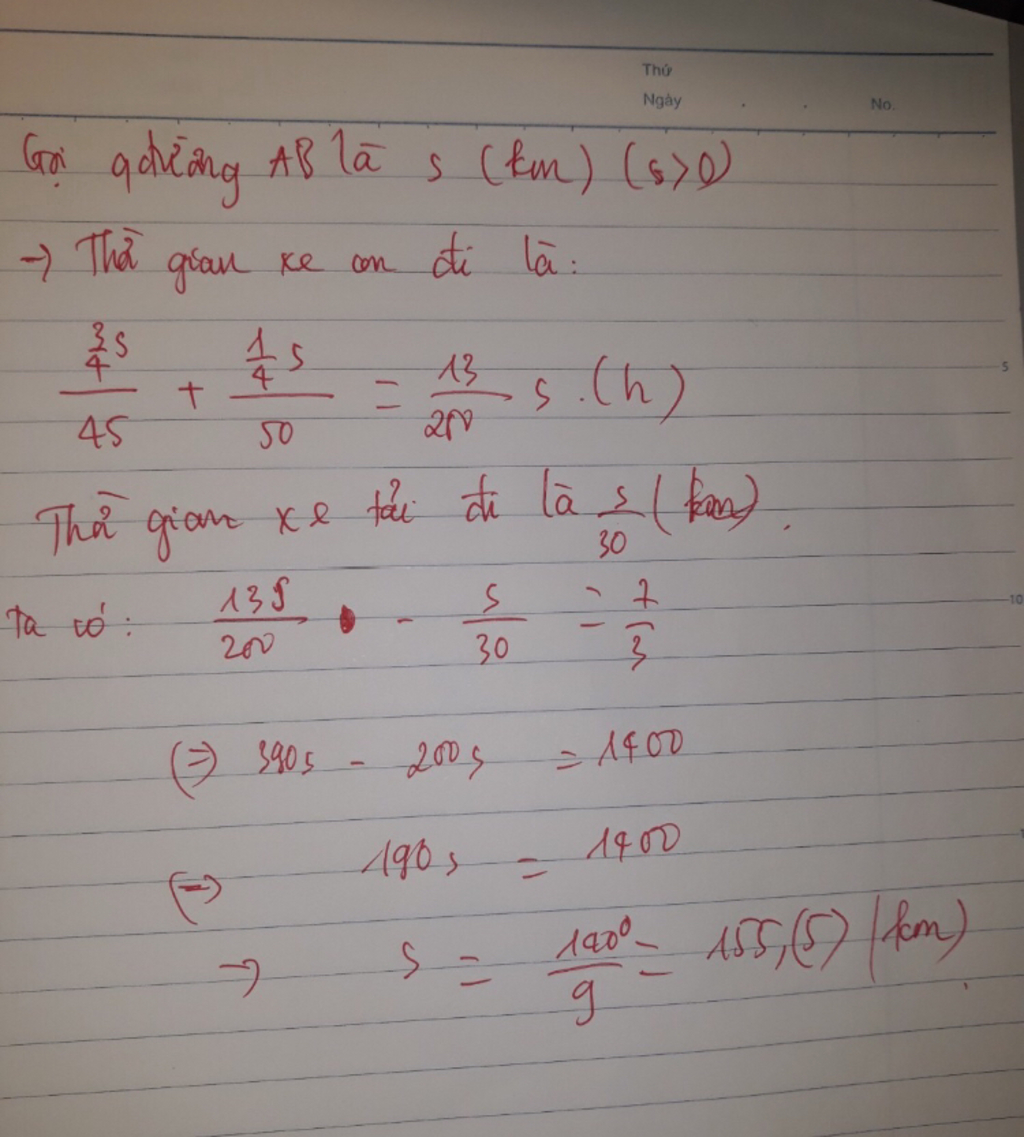 Thứ
Ngày . . No.
Gọi qđường AB là s (km) (s>0)
→ Thời gian xe con đi là:
\frac{\frac{3}{4}s}{45} + \frac{\frac{1}{4}s}{50} = \frac{13}{200} s .(h)
5
Thời gian xe tải đi là \frac{s}{30} (km).
Ta có: \frac{13s}{200} - \frac{s}{30} = \frac{7}{3}
10
(=) 390s - 200s = 1400
(=) 190s = 1400
→ s = \frac{1400}{9} = 155,(5) (km).